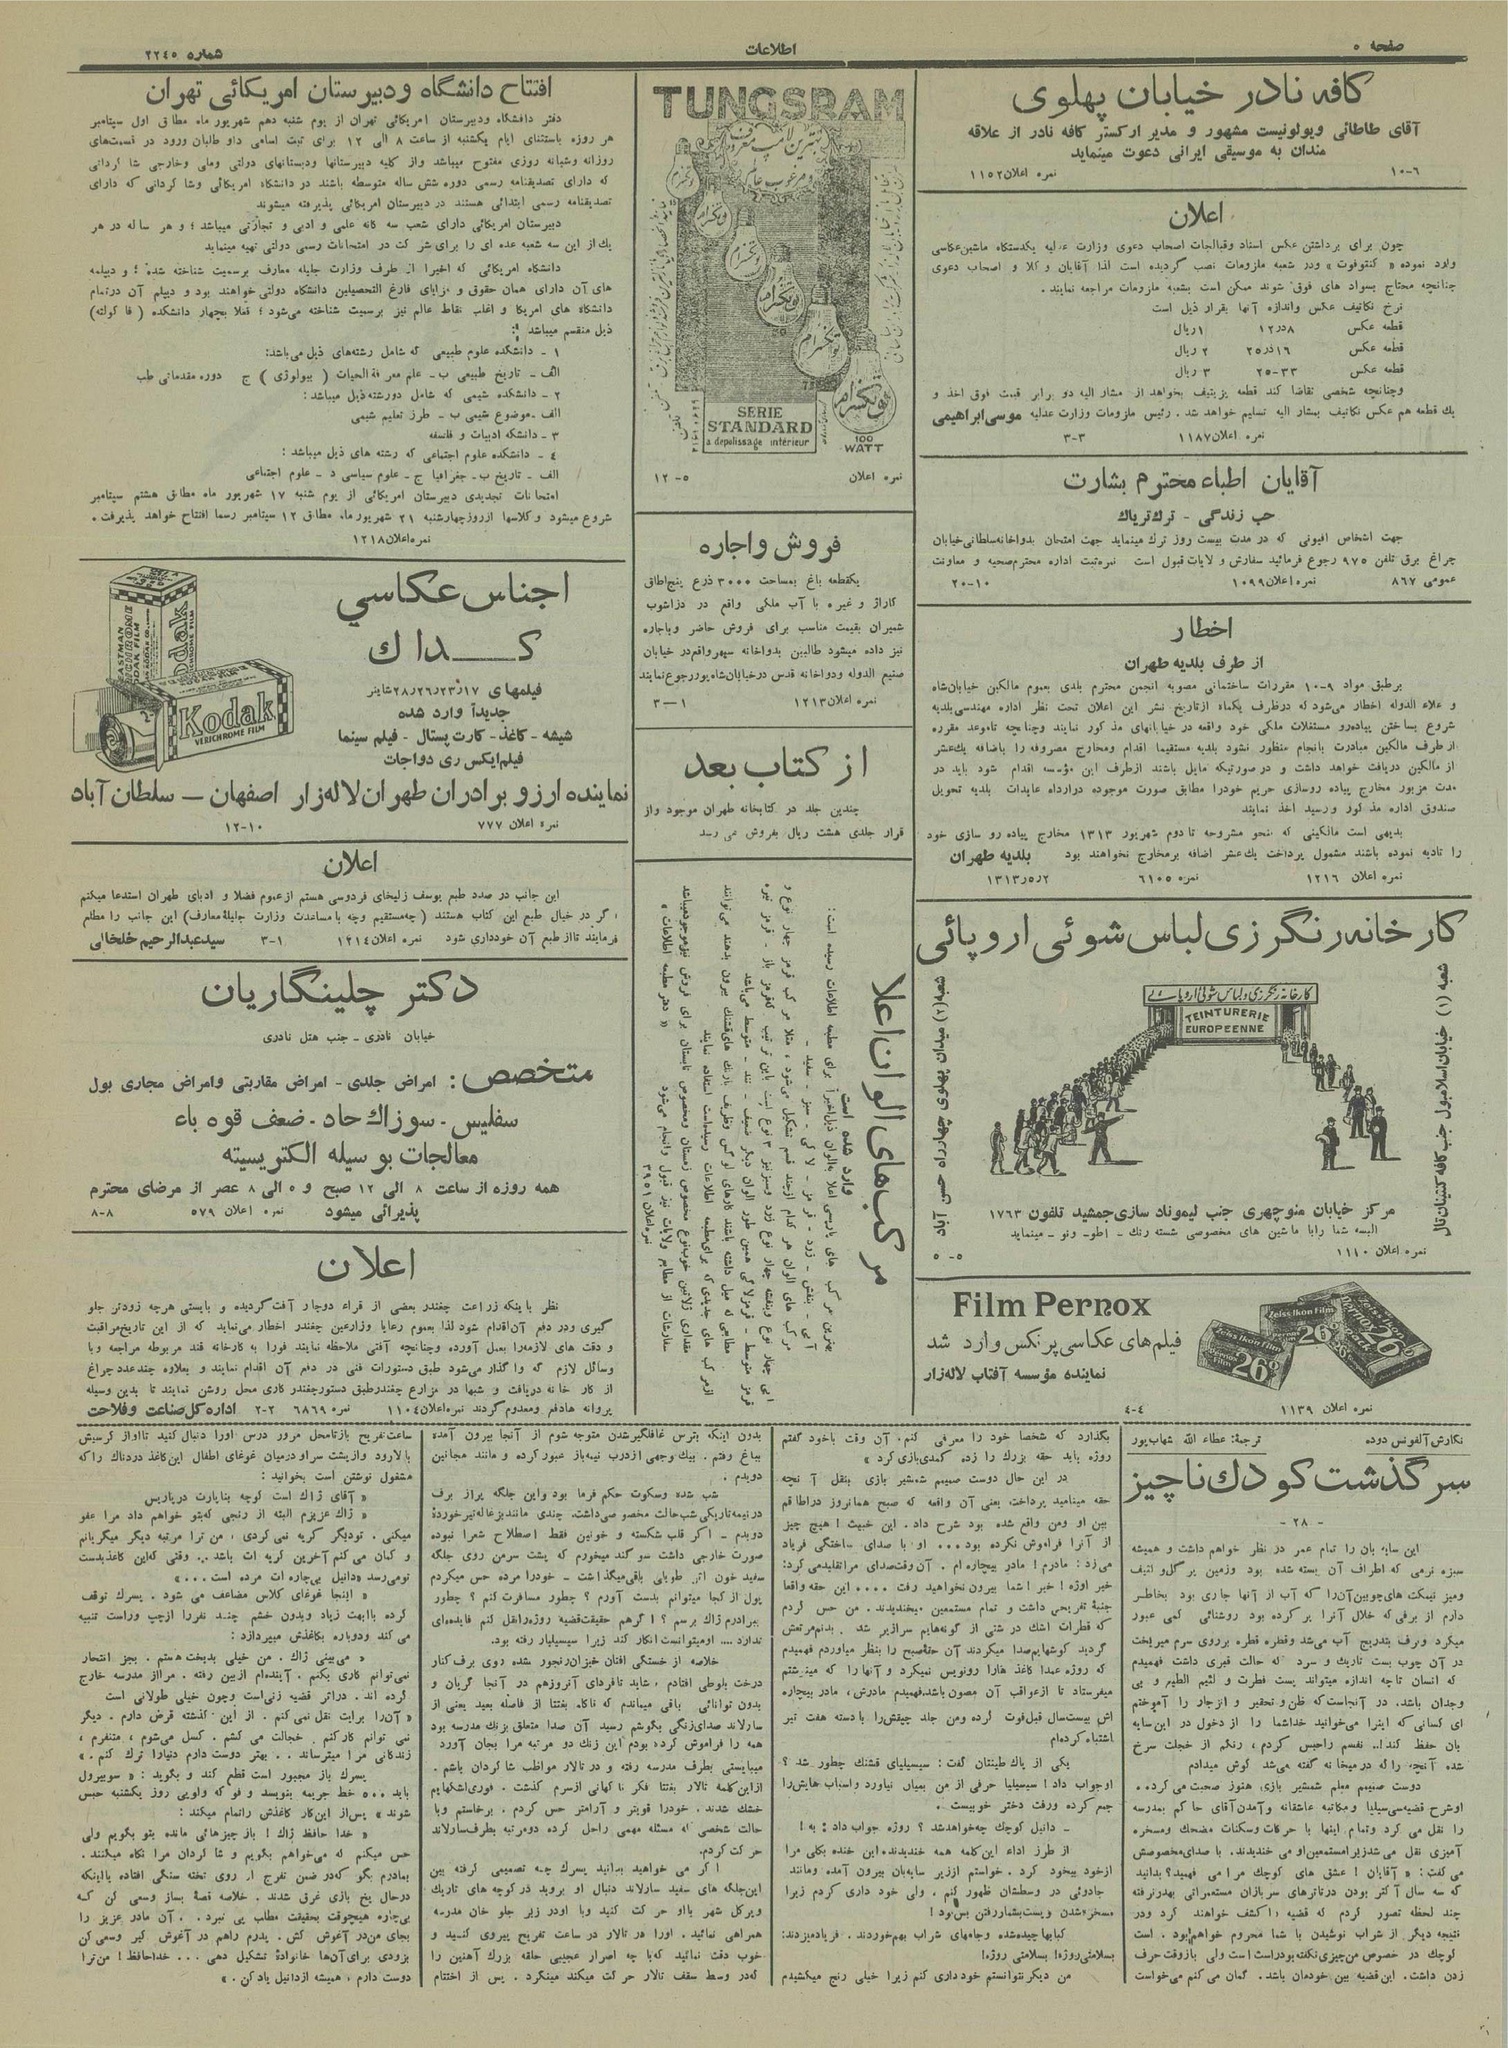 صفحه ۵
اطلاعات
شماره ۲۲٤۵
کافه نادر خیابان پهلوی
آقای طاطائی ویولونیست مشهور و مدیر ارکستر کافه نادر از علاقه
مندان به موسیقی ایرانی دعوت مینماید
۱۰-٦ نمره اعلان ۱۱۵۲
اعلان
چون برای برداشتن عکس اسناد وقبالجات اصحاب دعوی وزارت عدلیه یکدستگاه ماشین عکاسی
وارد نموده « کنتوفوت » ودر شعبه ملزومات نصب گردیده است لذا آقایان وکلا و اصحاب دعوی
چنانچه محتاج بسواد های فوق شوند ممکن است بشعبه ملزومات مراجعه نمایند.
نرخ تکالیف عکس واندازه آنها بقرار ذیل است
قطعه عکس ۸در۱۲ ۱ریال
قطعه عکس ۱٦در۲۵ ۲ ریال
قطعه عکس ۲۵-۳۳ ۳ ریال
وچنانچه شخصی تقاضا کند قطعه پزیتیف بخواهد از مشار الیه دو برابر قیمت فوق اخذ و
یك قطعه هم عکس نکاتیف بمشار الیه تسلیم خواهد شد. رئیس ملزومات وزارت عدلیه موسی ابراهیمی
نمره اعلان ۱۱۸۷ ۳-۳
آقایان اطباء محترم بشارت
حب زندگی - ترك تریاك
جهت اشخاص افیونی که در مدت بیست روز ترك مینماید جهت امتحان بدواخانه سلطانی خیابان
چراغ برق تلفن ۹۷۵ رجوع فرمائید سفارش ولایات قبول است نمره ثبت اداره محترم صحیه و معاونت
عمومی ۸٦۷ نمره اعلان ۱۰۹۹ ۲۰-۱۰
اخطار
از طرف بلدیه طهران
برطبق مواد ۹-۱۰ مقررات ساختمانی مصوبه انجمن محترم بلدی بعموم مالکین خیابان شاه
و علاء الدوله اخطار می‌شود که درظرف یکماه ازتاریخ نشر این اعلان تحت نظر اداره مهندسی بلدیه
شروع بساختن پیاده‌رو مستقلات ملکی خود واقعه در خیابانهای مذکور نمایند وچنانچه تاموعد مقرره
ازطرف مالکین مبادرت بانجام منظور نشود بلدیه مستقیما اقدام ومخارج مصروفه را باضافه یك عشر
از مالکین دریافت خواهد داشت و درصورتیکه مایل باشند ازطرف این مؤسسه اقدام شود باید در
مدت مزبور مخارج پیاده روسازی حریم خودرا مطابق صورت موجوده دراداره عایدات بلدیه تحویل
صندوق اداره مذکور ورسید اخذ نمایند
بدیهی است مالکینی که بنحو مشروحه تا دوم شهریور ۱۳۱۳ مخارج پیاده رو سازی خود
را تادیه نموده باشند مشمول پرداخت یك عشر اضافه برمخارج نخواهند بود بلدیه طهران
نمره اعلان ۱۲۱٦ نمره ٦۱۰۵ ۲ر۵ر۱۳۱۳
کارخانه رنگرزی لباس شوئی اروپائی
شعبه (۱) خیابان اسلامبول جنب کافه کنتینانتال
کارخانه رنگرزی و لباس شوئی اروپائی
TEINTURERIE
EUROPEENNE
مرکز خیابان منوچهری جنب لیموناد سازی جمشید تلفون ۱۷٦۳
البسه شما رابا ماشین های مخصوصی شسته رنك - اطو- رنو - مینماید
نمره اعلان ۱۱۱۰ ۵-۵
Film Pernox
فیلم‌های عکاسی پرنکس وارد شد
نماینده مؤسسه آفتاب لاله‌زار
Zeiss Ikon Film
Pernox 26°
نمره اعلان ۱۱۳۹ ٤-٤
TUNGSRAM
بهترین لامپ معروف
و مرغوب عالم
تونگسرام
SERIE
STANDARD
a depolissage intérieur
100
WATT
نمره اعلان ۱۲-۵
فروش واجاره
یکقطعه باغ بمساحت ۳۰۰۰ ذرع پنج اطاق
گاراژ و غیره با آب ملکی واقع در دزاشوب
شمیران بقیمت مناسب برای فروش حاضر وباجاره
نیز داده میشود طالبین بدواخانه سپهر واقع در خیابان
صنیع الدوله ودواخانه قدس درخیابان شاپور رجوع نمایند
نمره اعلان ۱۲۱۳ ۳-۱
از کتاب بعد
چندین جلد در کتابخانه طهران موجود واز
قرار جلدی هشت ریال بفروش می رسد
مرکب‌های الوان اعلا
وارد شده است
بهترین مرکب های پاریسی اعلا بالوان ذیل اخیراً برای مطبعه اطلاعات رسیده است:
آبی - بنفش - زرد - قرمز - لاکی - سبز - سفید -
مرکب های الوان هر کدام از چند قسم تشکیل می‌شود، مثلا مرکب قرمز چهار نوع و
آبی چهار نوع وبنفشه چهار نوع زرد وسبز نیز ۳ نوع است باین ترتیب که قرمز باز - قرمز تیره
قرمز متوسط - قرمز لاکی همین طور الوان دیگر ضعیف - تند - متوسط می‌باشد
مطابعی که میل داشته باشند کارهای لوکس وظریف با رنك های قشنك بیرون بدهند می‌توانند
از مرکب های جدیدی که برای مطبعه اطلاعات رسیده است استفاده نمایند
مقداری ژلاتین خوب نوع مخصوص زمستان ومخصوص تابستان برای فروش نیز موجود میباشد
سفارشات از مطابع ولایات نیز قبول وانجام می‌شود « دفتر مطبعه اطلاعات »
نمره اعلان ۳۹۵۱
افتتاح دانشگاه ودبیرستان امریکائی تهران
دفتر دانشگاه ودبیرستان امریکائی تهران از یوم شنبه دهم شهریور ماه مطابق اول سپتامبر
هر روزه باستثنای ایام یکشنبه از ساعت ۸ الی ۱۲ برای ثبت اسامی داو طلبان ورود در قسمت‌های
روزانه وشبانه روزی مفتوح میباشد واز کلیه دبیرستانها ودبستانهای دولتی وملی وخارجی شاگردانی
که دارای تصدیقنامه رسمی دوره شش ساله متوسطه باشند در دانشگاه امریکائی وشاگردانی که دارای
تصدیقنامه رسمی ابتدائی هستند در دبیرستان امریکائی پذیرفته میشوند
دبیرستان امریکائی دارای شعب سه گانه علمی و ادبی و تجارتی میباشد؛ و هر ساله در هر
یك از این سه شعبه عده ای را برای شرکت در امتحانات رسمی دولتی تهیه مینماید
دانشگاه امریکائی که اخیرا از طرف وزارت جلیله معارف برسمیت شناخته شده؛ و دیپلمه
های آن دارای همان حقوق و مزایای فارغ التحصیلین دانشگاه دولتی خواهند بود و دیپلم آن درتمام
دانشگاه های امریکا و اغلب نقاط عالم نیز برسمیت شناخته می‌شود؛ فعلا بچهار دانشکده ( فاکولته)
ذیل منقسم میباشد:
۱ - دانشکده علوم طبیعی که شامل رشته‌های ذیل می‌باشد:
الف - تاریخ طبیعی ب- علم معرفة الحیات ( بیولوژی ) ج دوره مقدماتی طب
۲ - دانشکده شیمی که شامل دورشته ذیل میباشد:
الف- موضوع شیمی ب - طرز تعلیم شیمی
۳ - دانشکه ادبیات و فلسفه
٤ - دانشکده علوم اجتماعی که رشته های ذیل میباشد:
الف - تاریخ ب- جغرافیا ج- علوم سیاسی د - علوم اجتماعی
امتحانات تجدیدی دبیرستان امریکائی از یوم شنبه ۱۷ شهریور ماه مطابق هشتم سپتامبر
شروع میشود وکلاسها ازروز چهارشنبه ۲۱ شهریور ماه مطابق ۱۲ سپتامبر رسما افتتاح خواهد پذیرفت.
نمره اعلان ۱۲۱۸
اجناس عکاسی
کداك
فیلمهای ۱۷ر۲۳ر۲٦ر۲۸ شاینر
جدیداً وارد شده
شیشه - کاغذ- کارت پستال - فیلم سینما
فیلم ایکس ری دواجات
Kodak
VERICHROME FILM
نماینده ارزو برادران طهران لاله‌زار اصفهان - سلطان آباد
نمره اعلان ۷۷۷ ۱۲-۱۰
اعلان
این جانب در صدد طبع یوسف زلیخای فردوسی هستم ازعموم فضلا و ادبای طهران استدعا میکنم
اگر در خیال طبع این کتاب هستند (چه مستقیم وچه با مساعدت وزارت جلیلهٔ معارف) این جانب را مطلع
فرمایند تااز طبع آن خودداری شود نمره اعلان ۱۲۱٤ ۳-۱ سید عبدالرحیم خلخالی
دکتر چلینگاریان
خیابان نادری - جنب هتل نادری
متخصص: امراض جلدی - امراض مقاربتی وامراض مجاری بول
سفلیس - سوزاك حاد - ضعف قوه باء
معالجات بوسیله الکتریسیته
همه روزه از ساعت ۸ الی ۱۲ صبح و ۵ الی ۸ عصر از مرضای محترم
پذیرائی میشود نمره اعلان ۵۷۹ ۸-۸
اعلان
نظر باینکه زراعت چغندر بعضی از قراء دوچار آفت گردیده و بایستی هرچه زودتر جلو
گیری ودر دفع آن اقدام شود لذا بعموم رعایا وزارعین چغندر اخطار می‌نماید که از این تاریخ مراقبت
و دقت های لازمه را بعمل آورده وچنانچه آفتی ملاحظه نمایند فورا به کارخانه قند مربوطه مراجعه وبا
وسائل لازم که وا گذار می‌شود طبق دستورات فنی در دفع آن اقدام نمایند و بعلاوه چند عدد چراغ
از کار خانه دریافت و شبها در مزارع چغندر طبق دستور چغندر کاری محل روشن نمایند تا بدین وسیله
پروانه هادفع ومعدوم گردند نمره اعلان ۱۱۰٤ نمره ٦۸٦۹ ۲-۲ اداره کل صناعت وفلاحت
نگارش آلفونس دوده ترجمهٔ: عطاء الله شهاب‌پور
سرگذشت کودك ناچیز
- ۲۸ -
این سایه بان را تمام عمر در نظر خواهم داشت و همیشه
سبزه نرمی که اطراف آن بسته شده بود وزمین پر گل و کثیف
ومیز نیمکت های چوبین آن را که آب از آنها جاری بود بخاطر
دارم از برفی که خلال آنرا پر کرده بود روشنائی کمی عبور
میکرد وبرف بتدریج آب می‌شد وقطره قطره برروی سرم میریخت
در آن چوب بست تاریك و سرد که حالت قبری داشت فهمیدم
که انسان تاچه اندازه میتواند پست فطرت و لئیم الطبع و بی
وجدان باشد. در آنجاست که ظن و تحقیر و انزجار را آموختم
ای کسانی که اینرا می‌خوانید خدا شما را از دخول در این سایه
بان حفظ کند!.. نفسم راحبس کردم، رنگم از خجلت سرخ
شده آنچه را که در میخانه گفته می‌شد گوش میدادم
دوست صمیم معلم شمشیر بازی هنوز صحبت می‌کرد..
اوشرح قضیه سیسیلیا ومکاتبه عاشقانه وآمدن آقای حاکم بمدرسه
را نقل می کرد وتمام اینها با حرکات وسکنات مضحك ومسخره
آمیزی نقل می شد زیرا مستمعین او می خندیدند. با صدای مخصوصش
می‌گفت: « آقایان! عشق های کوچك مرا می فهمید؟ بدانید
که سه سال آکتر بودن درتاترهای سربازان مستعمراتی بهدر نرفته
چند لحظه تصور کردم که قضیه را کشف خواهند کرد ودر
نتیجه دیگر از شراب نوشیدن با شما محروم خواهم بود. است
کوچك در خصوص من چیزی نگفته بود درست است ولی بازوقت حرف
زدن داشت. این قضیه بین خودمان باشد. گمان می کنم می‌خواست
بگذارد که شخصا خود را معرفی کنم. آن وقت باخود گفتم
روژه باید حقه بزرك را زده کمدی بازی کرد »
در این حال دوست صمیم شمشیر بازی بنقل آنچه
حقه مینامید پرداخت، یعنی آن واقعه که صبح همانروز دراطاقم
بین او ومن واقع شده بود شرح داد. این خبیث! هیچ چیز
از آنرا فراموش نکرده بود... او با صدای ساختگی فریاد
می‌زد: مادرم! مادر بیچاره ام. آن وقت صدای مراتقلیدمی کرد:
خیر اوژه! خیر! شما بیرون نخواهید رفت .... این حقه واقعا
جنبهٔ تفریحی داشت و تمام مستمعین میخندیدند. من حس کردم
که قطرات اشك در شتی از گونه‌هایم سرازیر شد. بدنم مرتعش
گردید گوشهایم صدا میکردند آن حقهٔ صبح را بنظر میاوردم فهمیدم
که روژه عمدا کاغذ هارا رونویس نمیکرد و آنها را که مینوشتم
میفرستاد تا ازعواقب آن مصون باشد. فهمیدم مادرش، مادر بیچاره
اش بیست سال قبل فوت کرده ومن جلد چپقش را با دسته هفت تیر
اشتباه کرده‌ام
یکی از یاك طینتان گفت: سیسیلیای قشنك چطور شد؟
اوجواب داد! سیسیلیا حرفی از من بمیان نیاورد واسباب هایش را
جمع کرده ورفت دختر خوبیست.
- دانیل کوچك چه خواهد شد؟ روژه جواب داد: به!
از طرز اداء این کلمه همه خندیدند این خنده بکلی مرا
ازخود بیخود کرد. خواستم اززیر سایه‌بان بیرون آمده ومانند
جادوئی در وسطشان ظهور کنم. ولی خود داری کردم زیرا
مسخره شدن وپست بشمار رفتن بس بود!
کبابها چیده شده وجام‌های شراب بهم خوردند. فریاد میزدند:
بسلامتی روژه! بسلامتی روژه!
من دیگر نتوانستم خود داری کنم زیرا خیلی رنج میکشیدم
بدون اینکه بترس غافلگیر شدن متوجه شوم از آنجا بیرون آمده
بباغ رفتم. بیك وجهی ازدرب نیمه باز عبور کرده و مانند مجانین
دویدم.
شب شده وسکوت حکم فرما بود واین جلگه پراز برف
درنیمه تاریکی شب حالت مخصوصی داشت. چندی مانند بزغاله تیرخوردهٔ
دویدم - اگر قلب شکسته و خونین فقط اصطلاح شعرا نبوده
صورت خارجی داشت سوگند میخورم که پشت سرمن روی جلگه
سفید خون اثر طویلی باقی میگذاشت - خودرا مرده حس میکردم
پول از کجا میتوانم بدست آورم؟ چطور مسافرت کنم؟ چطور
ببرادرم ژاك برسم؟ اگرهم حقیقت قضیه روژه رانقل کنم فایده‌ای
ندارد.... اومیتوانست انکار کند زیرا سیسیلیار رفته بود.
خلاصه از خستگی افتان خیزان رنجور شده روی برف کنار
درخت بلوطی افتادم، شاید تافردای آنروزهم در آنجا گریان و
بدون توانائی باقی میماندم که ناگاه بغتتا از فاصله بعید یعنی از
سارلاند صدای زنگی بگوشم رسید آن صدا متعلق بزنك مدرسه بود
همه را فراموش کرده بودم این زنك دو مرتبه مرا بجان آورد
میبایستی بطرف مدرسه رفته و در تالار مواظب شاگردان باشم.
ازاین کلمه تالار بغتتا فکر ناگهانی ازسرم گذشت. فوری اشکهایم
خشك شدند. خودرا قویتر و آرامتر حس کردم. برخاستم وبا
حالت شخصی که مسئله مهمی راحل کرده دومرتبه بطرف سارلاند
حرکت کردم.
اگر می خواهید بدانید پسرك چه تصمیمی گرفته بین
این جلگه های سفید سارلاند دنبال او بروید در کوچه های تاریك
وپرگل شهر بااو حرکت کنید وبا اودر زیر جلو خان مدرسه
همراهی نمائید. اورا در تالار در ساعت تفریح پیروی کنید و
خوب دقت نمائید که با چه اصرار عجیبی حلقه بزرك آهنین را
که در وسط سقف تالار حرکت میکند مینگرد. پس از اختتام
ساعت تفریح بازتامحل مرور درس اورا دنبال کنید تااواز کرسیش
بالارود وازپشت سراو درمیان غوغای اطفال این کاغذ دردناك راکه
مشغول نوشتن است بخوانید:
« آقای ژاك است کوچه بناپارت درپاریس
« ژاك عزیزم البته از رنجی که بتو خواهم داد مرا عفو
میکنی. تودیگر گریه نمی کردی، من ترا مرتبه دیگر میگریانم
و گمان می کنم آخرین گریه ات باشد... وقتی که این کاغذ بدست
تو می رسد «دانیل بی‌چاره ات مرده است...»
« اینجا غوغای کلاس مضاعف می شود. پسرك توقف
کرده باابهت زیاد وبدون خشم چند نفررا ازچپ وراست تنبیه
می کند ودوباره بکاغذش میپردازد:
« می‌بینی ژاك. من خیلی بدبخت هستم. بجز انتحار
نمی‌توانم کاری بکنم. آینده‌ام ازبین رفته. مرااز مدرسه خارج
کرده اند. دراثر قضیه زنی است وچون خیلی طولانی است
« آن را برایت نقل نمی کنم. از این گذشته قرض دارم. دیگر
نمی توانم کار کنم. خجالت می کشم. کسل می‌شوم، متنفرم،
زندگانی مرا میترساند.. بهتر دوست دارم دنیارا ترك کنم.»
پسرك باز مجبور است قطع کند و بگوید: « سوبیرول
باید ۵۰۰ خط جریمه بنویسد و فو که ولوپی روز یکشنبه حبس
شوند » پس از این کار کاغذش راتمام میکند:
« خدا حافظ ژاك! باز چیزهائی مانده بتو بگویم ولی
حس میکنم که می‌خواهم بگویم و شاگردان مرا نگاه میکنند.
بمادرم بگو که در ضمن تفرج از روی تخته سنگی افتاده یااینکه
درحال یخ بازی غرق شدند. خلاصه قصهٔ بساز وسعی کن که
بی‌چاره هیچوقت بحقیقت مطلب پی نبرد. آن مادر عزیز را
بجای من در آغوش کش. پدرم راهم در آغوش گیر وسعی کن
بزودی برای آن‌ها خانوادهٔ تشکیل دهی... خداحافظ! من ترا
دوست دارم، همیشه ازدانیل یاد کن. »